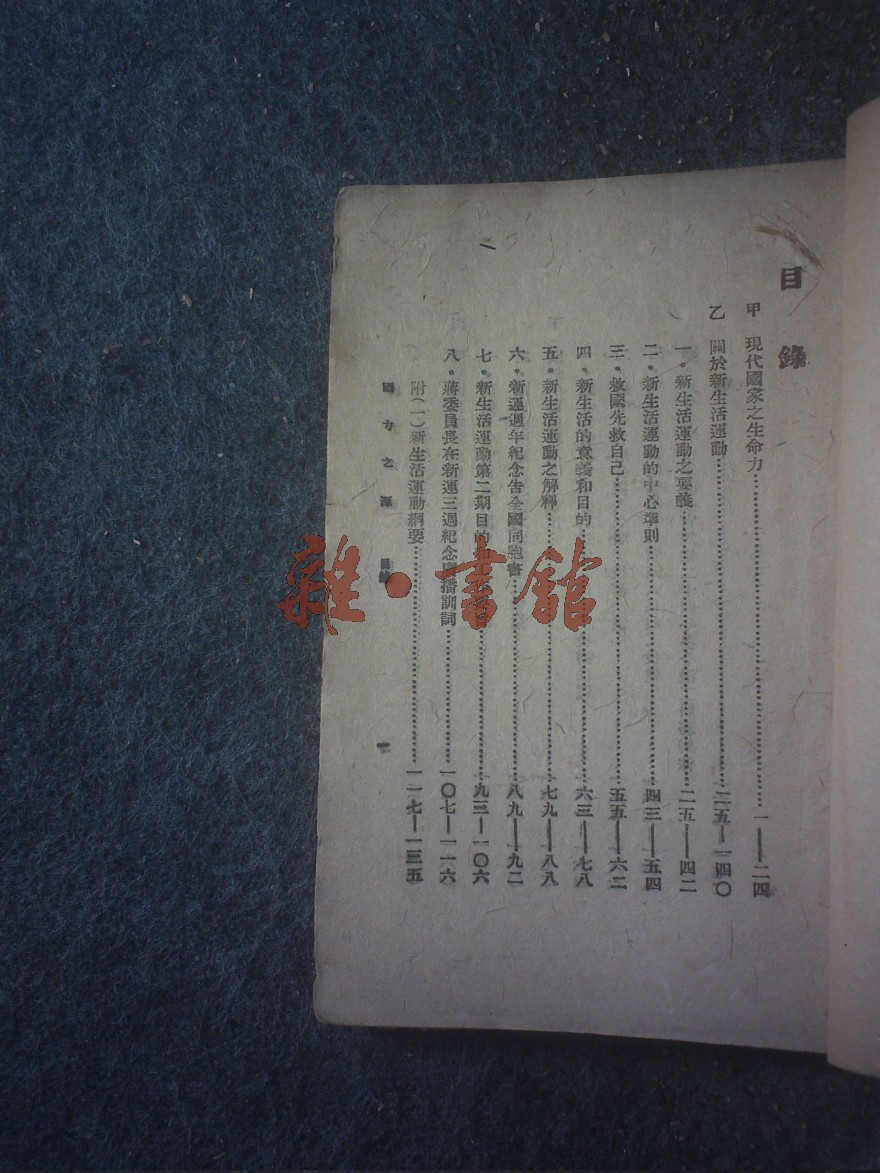 目錄
甲 現代國家之生命力 一——二四
乙 關於新生活運動 二五—一四〇
一・新生活運動之要義 二五—四二
二・新生活運動的中心準則 四三—五四
三・救國先救自己 五五—六二
四・新生活的意義和目的 六三—七八
五・新生活運動之解釋 七九—八八
六・新運週年紀念告全國同胞書 八九——九二
七・新生活運動第二期目的和 九三—一〇六
八・蔣委員長在新運三週紀念廣播訓詞 一〇七—一一六
附(一)新生活運動綱要 一一七—一三五
國力之源 目錄 一
雜・書館